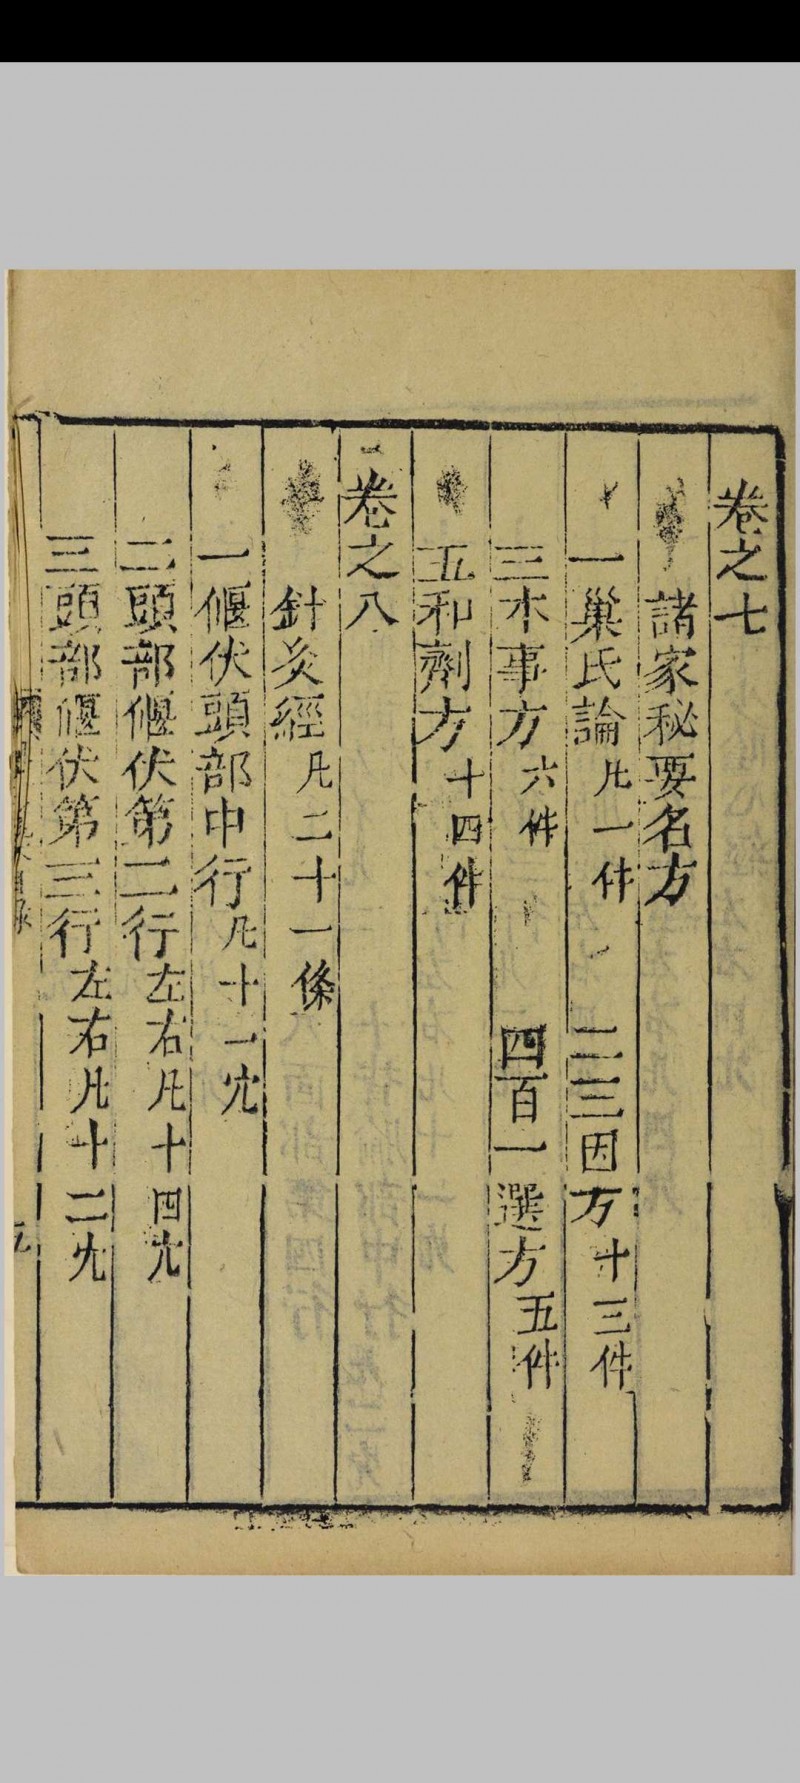 卷之七
諸家秘要名方
一巢氏論凡一件 二三因方十三件
三本事方六件 四百一選方五件
五和劑方十四件
卷之八
針灸經凡二十一條
一偃伏頭部中行凡十一穴
二頭部偃伏第二行左右凡十四穴
三頭部偃伏第三行左右凡十二穴